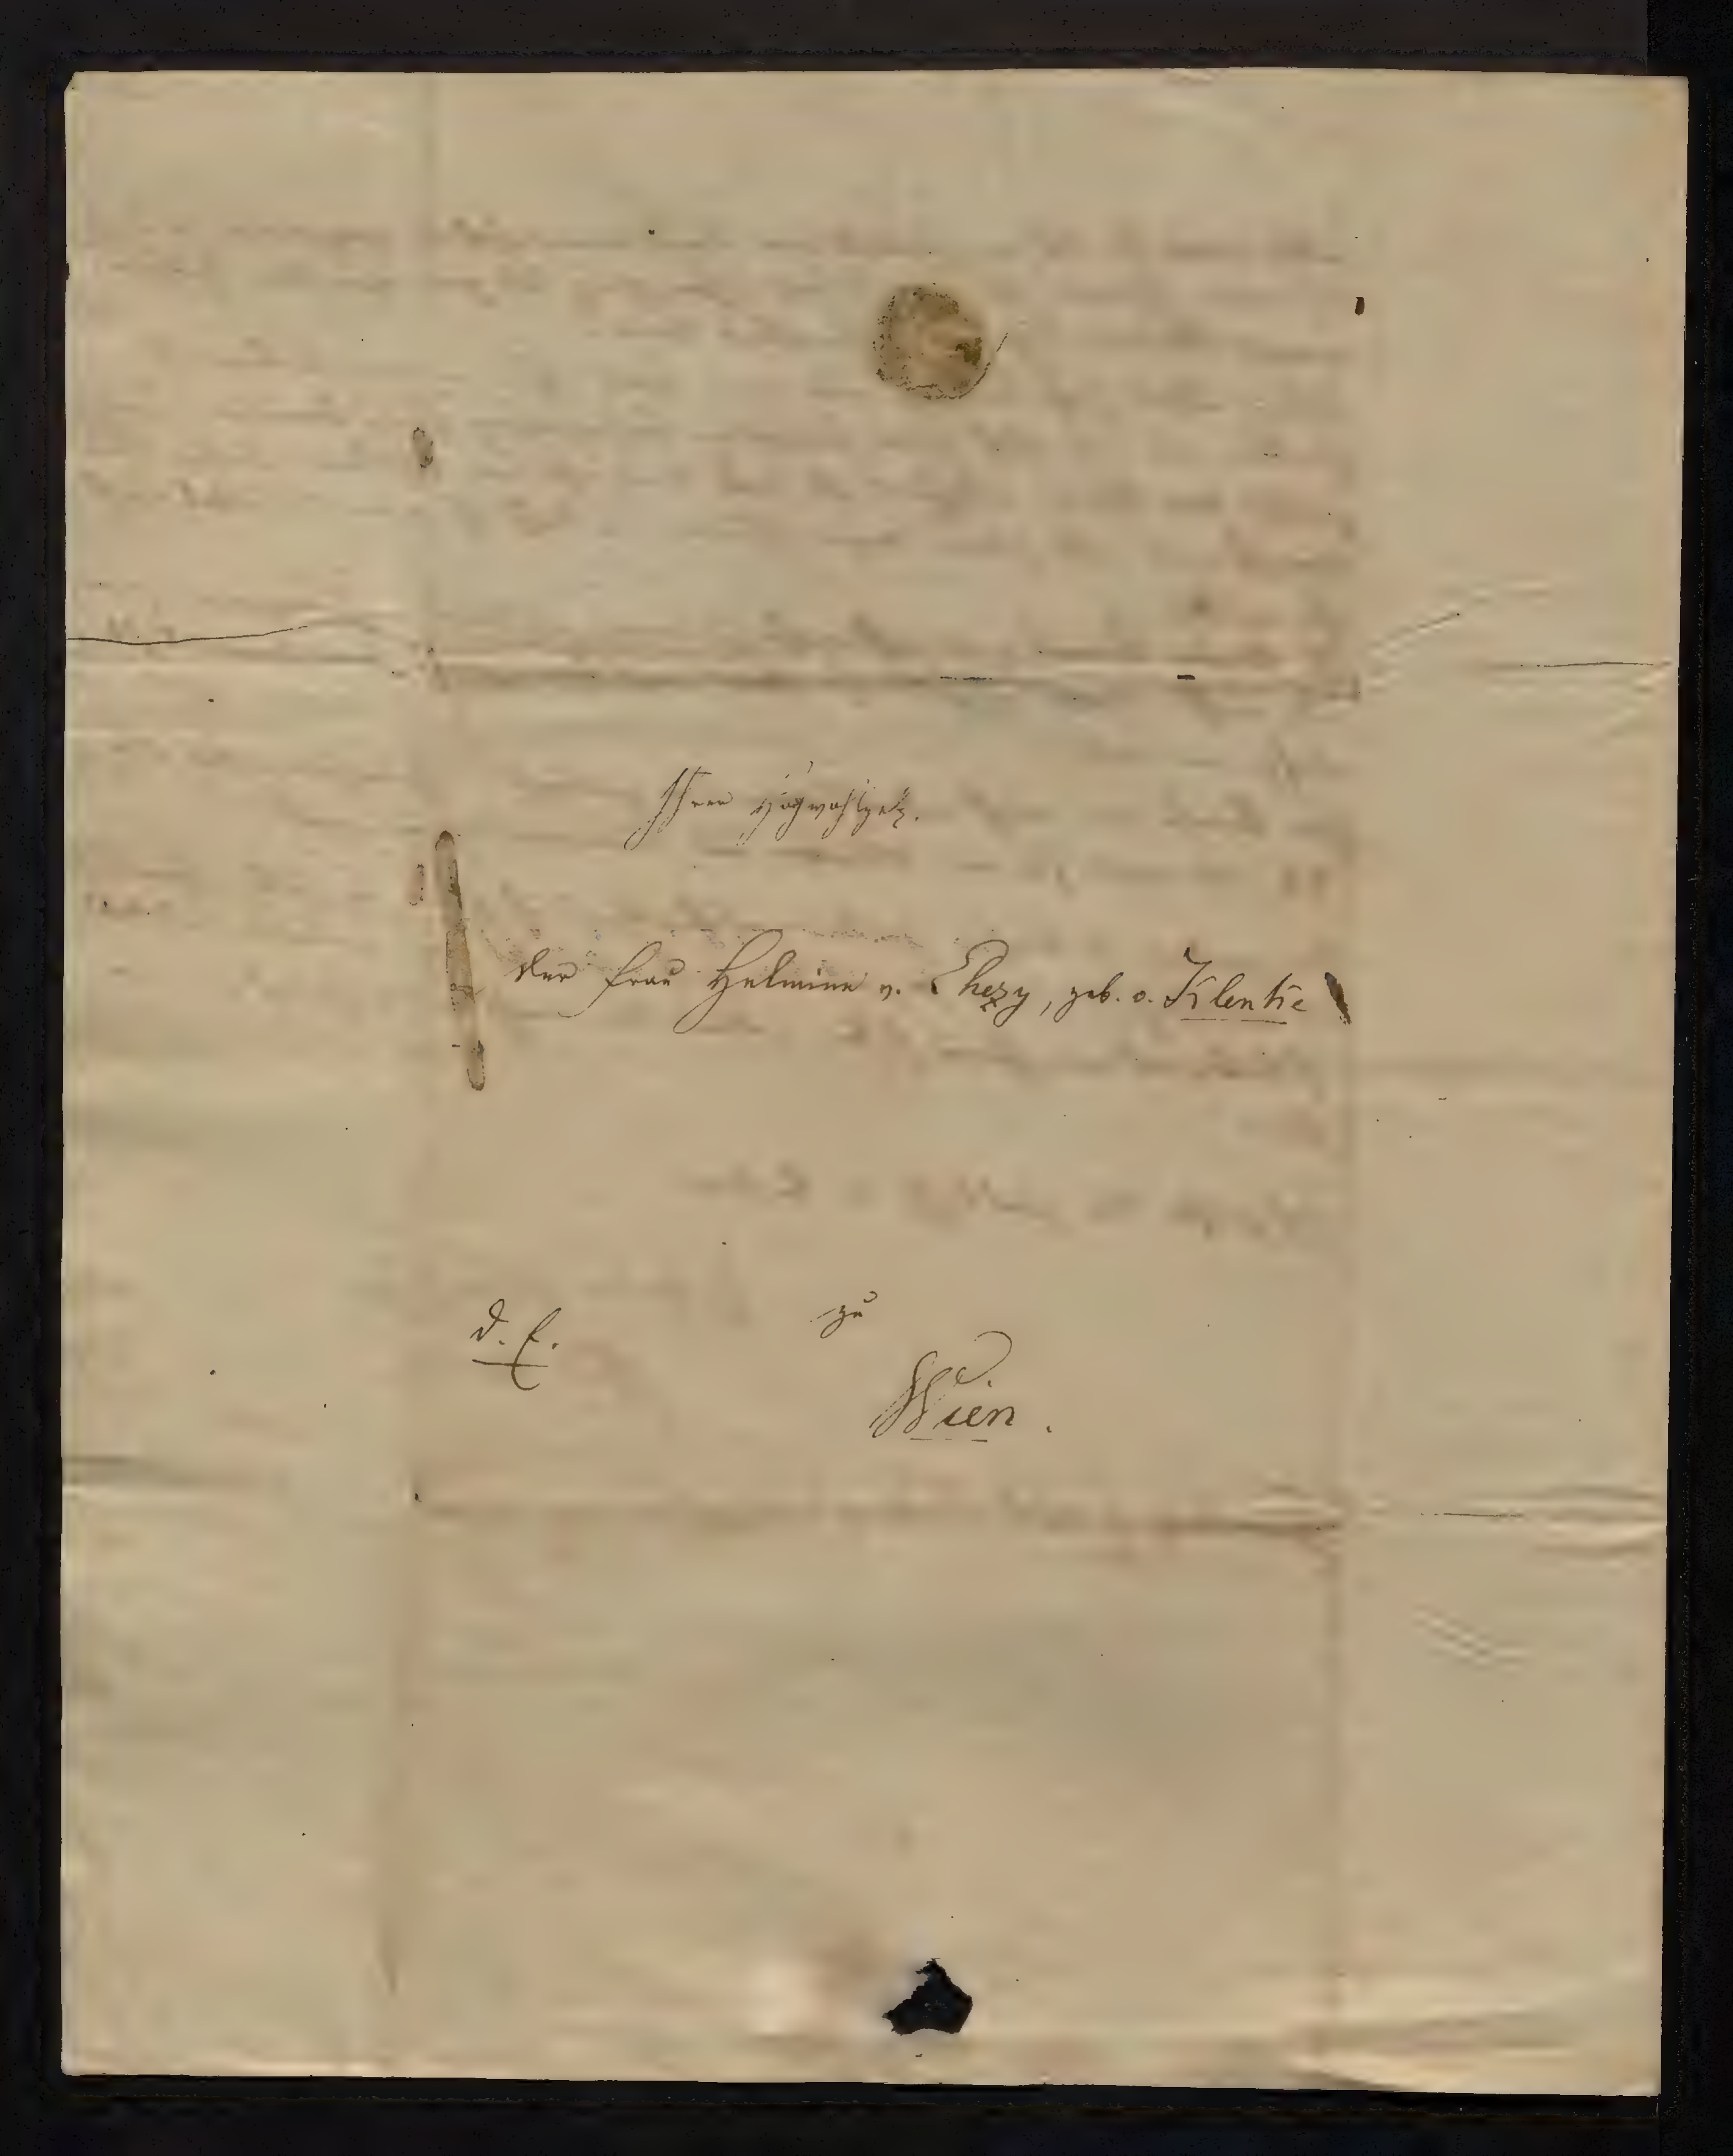 Ihrer Hochwohlgeb.
der Frau Helmina v. Chezy, geb. v. Klenke
zu
d. E.
Wien.